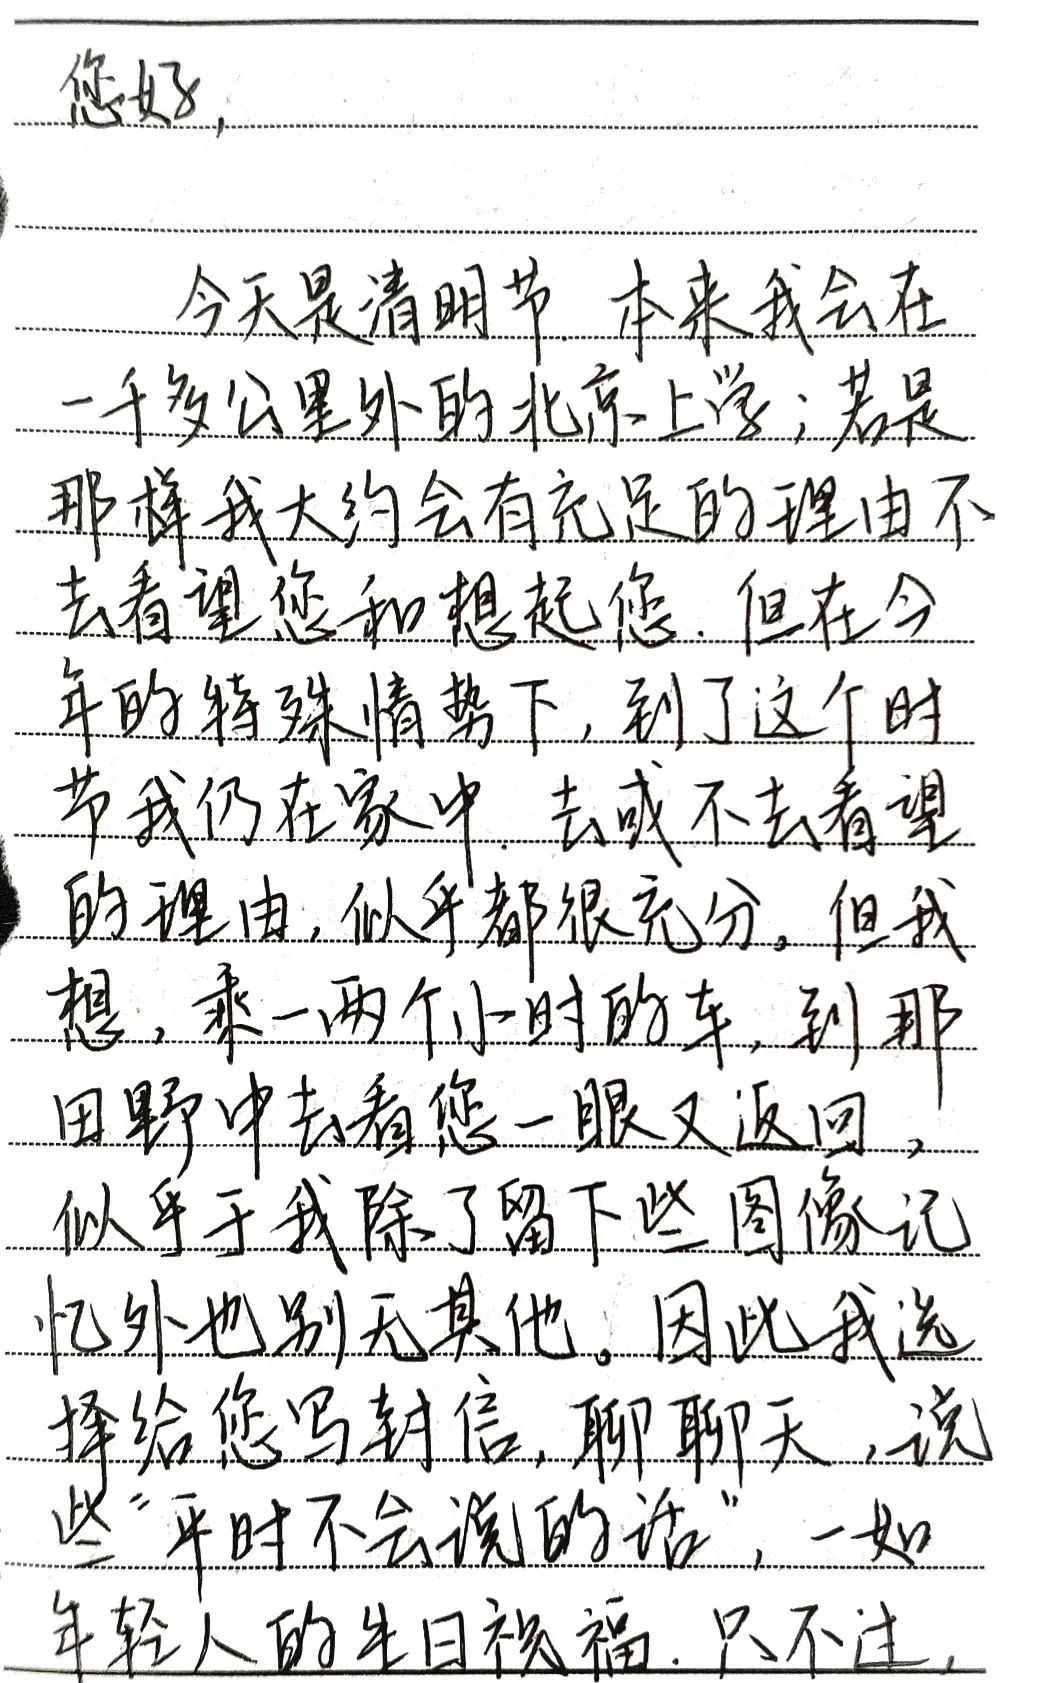 您好,
今天是清明节.本来我会在
一千多公里外的北京上学;若是
那样我大约会有充足的理由不
去看望您和想起您.但在今
年的特殊情势下,到了这个时
节我仍在家中.去或不去看望
的理由,似乎都很充分。但我
想,乘一两个小时的车,到那
田野中去看您一眼又返回,
似乎于我除了留下些图像记
忆外也别无其他。因此我选
择给您写封信,聊聊天,说
些“平时不会说的话”,一如
年轻人的生日祝福.只不过,